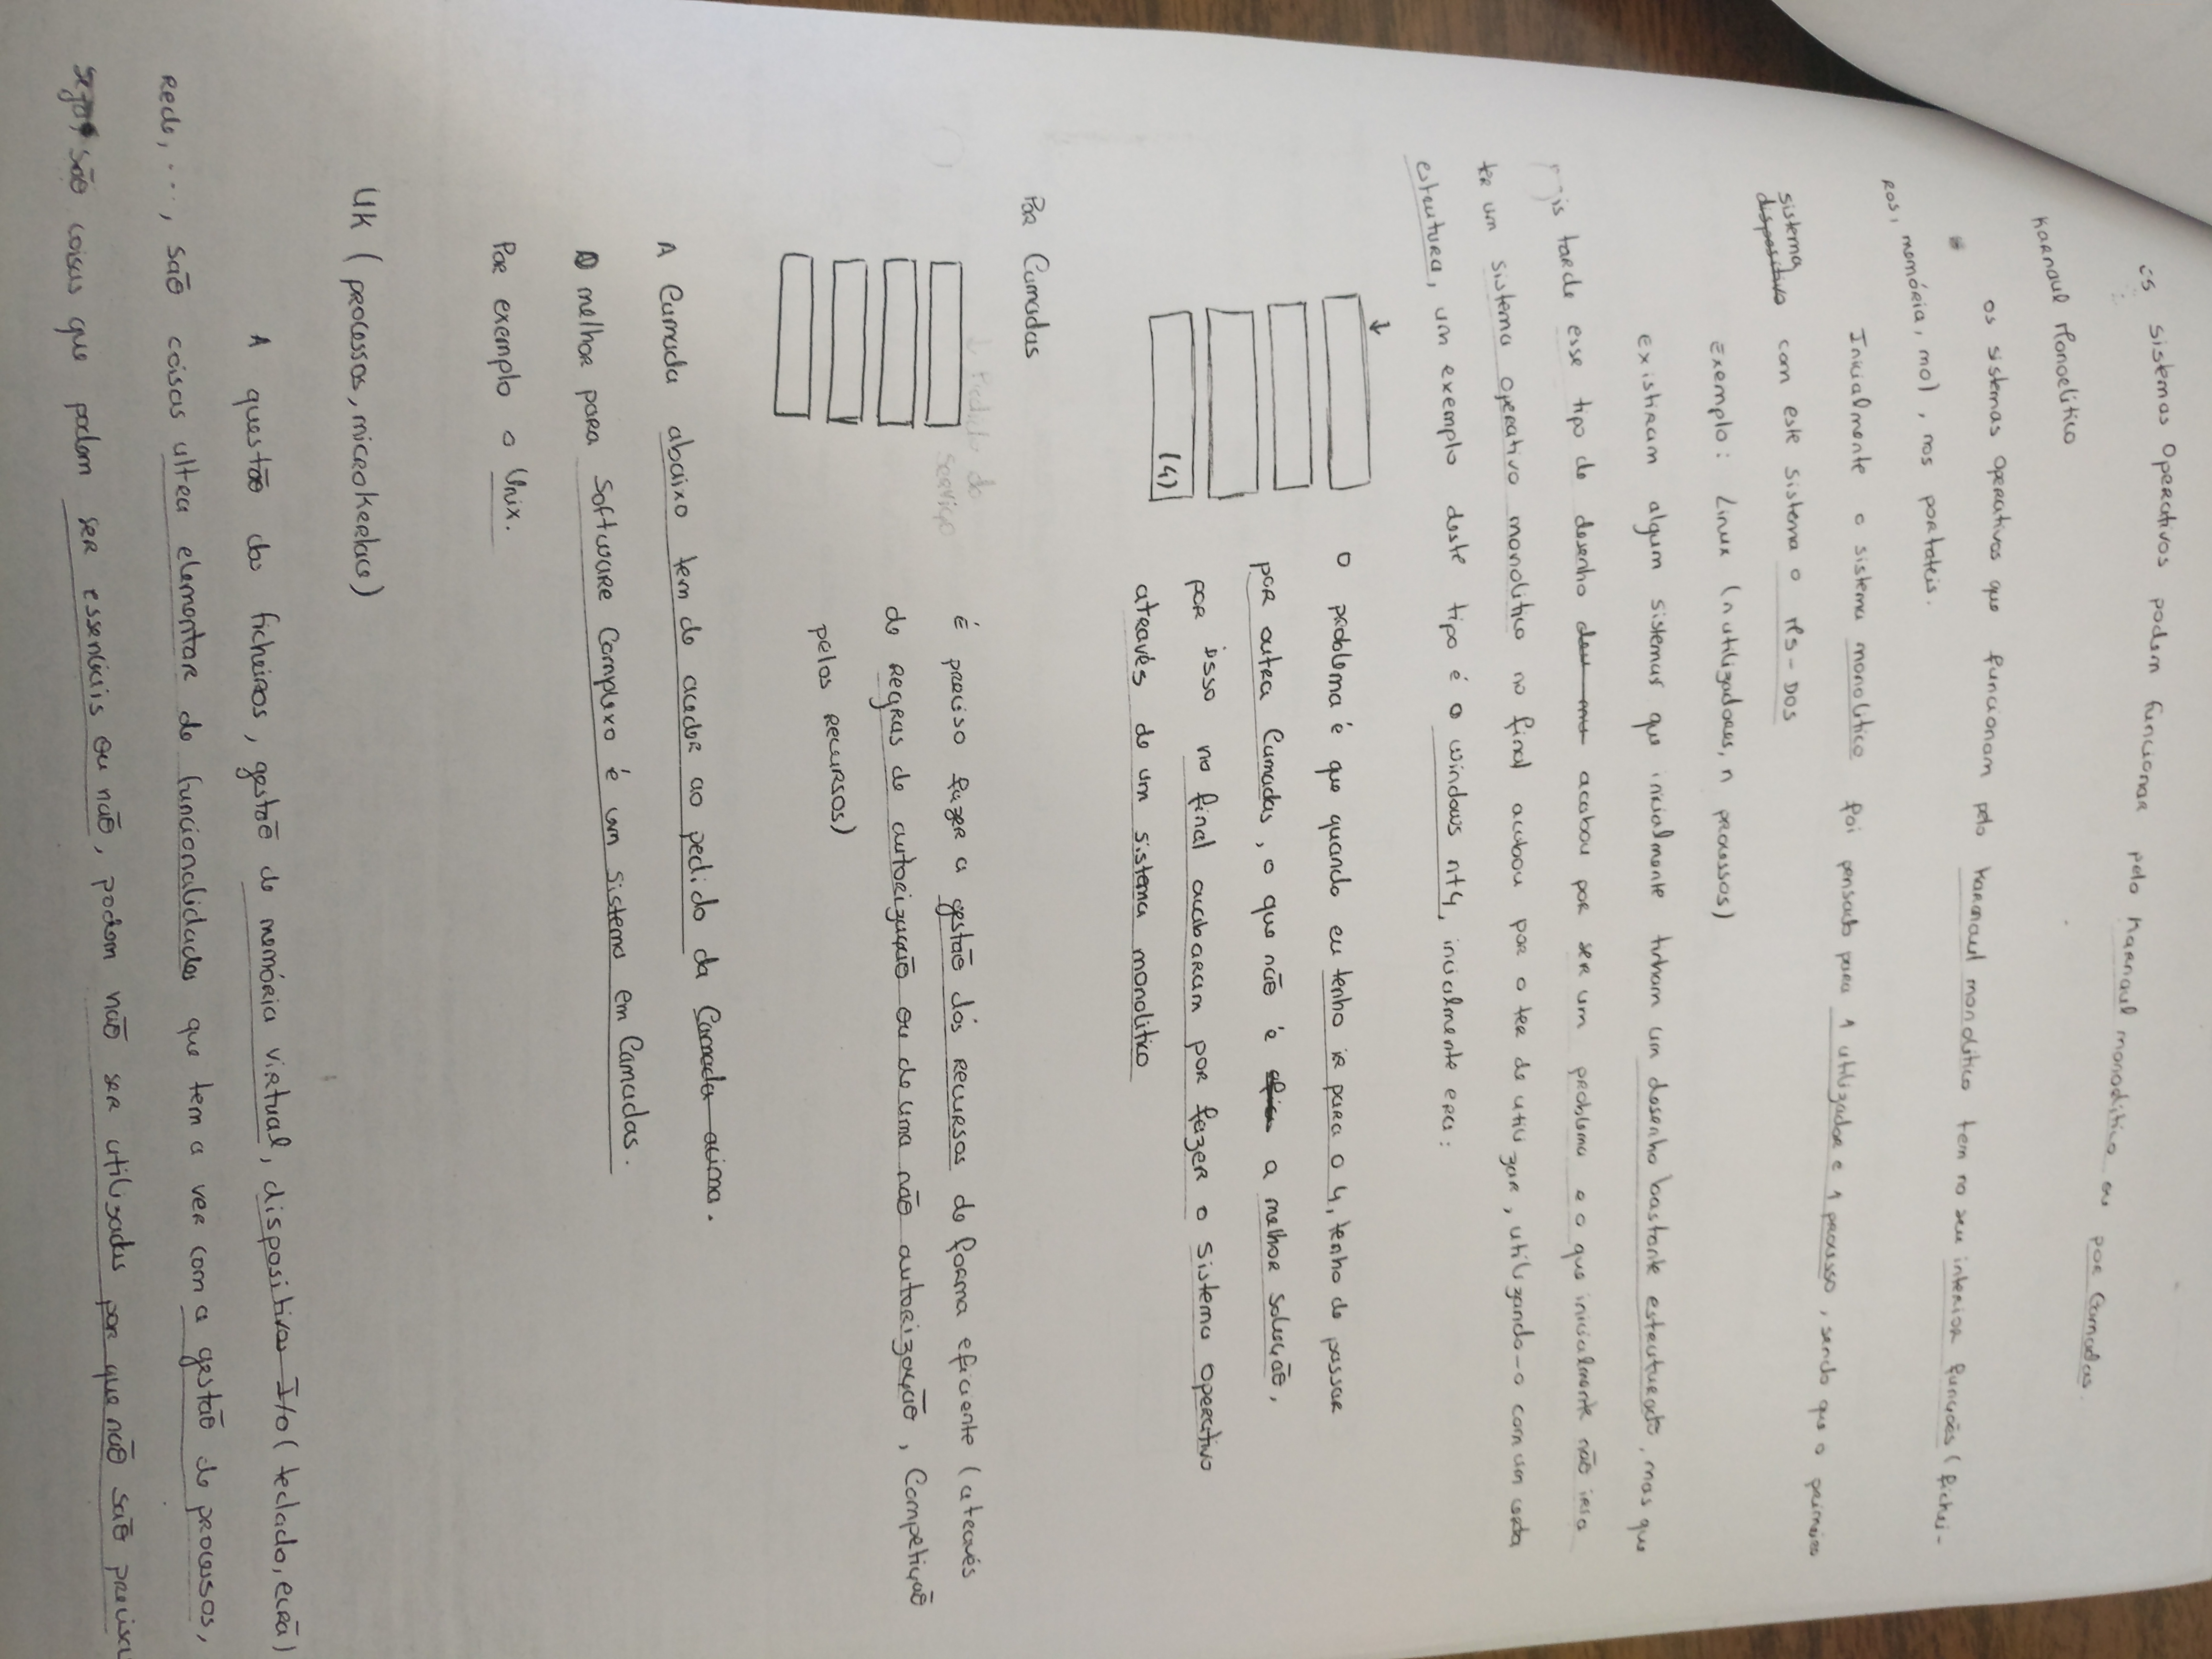 os sistemas operativos podem funcionar pelo Karnaul monoditico ou por Camadas.
Karnaul Monoelitico
os sistemas operativos que funcionam pelo Karnaul monolitico tem no seu interior funções (fichei-
ros, memória, mol), nos portateis.
Inicialmente o sistema monolitico foi pensado para 1 utilizador e 1 processo, sendo que o primeiro
sistema
dispositivo com este sistema o MS-DOS
Exemplo: Linux (n utilizadores, n processos)
existiram algum sistemas que inicialmente tinham um desenho bastante estruturado, mas que
is tarde esse tipo de desenho acabou por ser um problema e o que inicialmente não iria
ter um sistema operativo monolitico no final acabou por o ter de utilizar, utilizando-o com um
estrutura, um exemplo deste tipo é o windows nt4, inicialmente era:
(4)
O problema é que quando eu tenho ir para o 4, tenho de passar
por outra Camadas, o que não é a melhor solução,
por isso no final acabaram por fazer o sistema operativo
através de um sistema monolitico
Por Camadas
↓ Pedido de
serviço
É preciso fazer a gestão dos recursos de forma eficiente (através
de regras de autorização ou de uma não autorização, Competição
pelos recursos)
A Camada abaixo tem de aceder ao pedido da Camada acima.
O melhor para Software Complexo é um sistema em Camadas.
Por exemplo o Unix.
UK (processos, microKerlais)
A questão do ficheiros, gestão de memória virtual, dispositivos I/o (teclado, ecrã)
rede, ..., são coisas ultra elementar de funcionalidades que tem a ver com a gestão de processos,
seja, são coisas que podem ser essenciais ou não, podem não ser utilizadas por que não são precisa